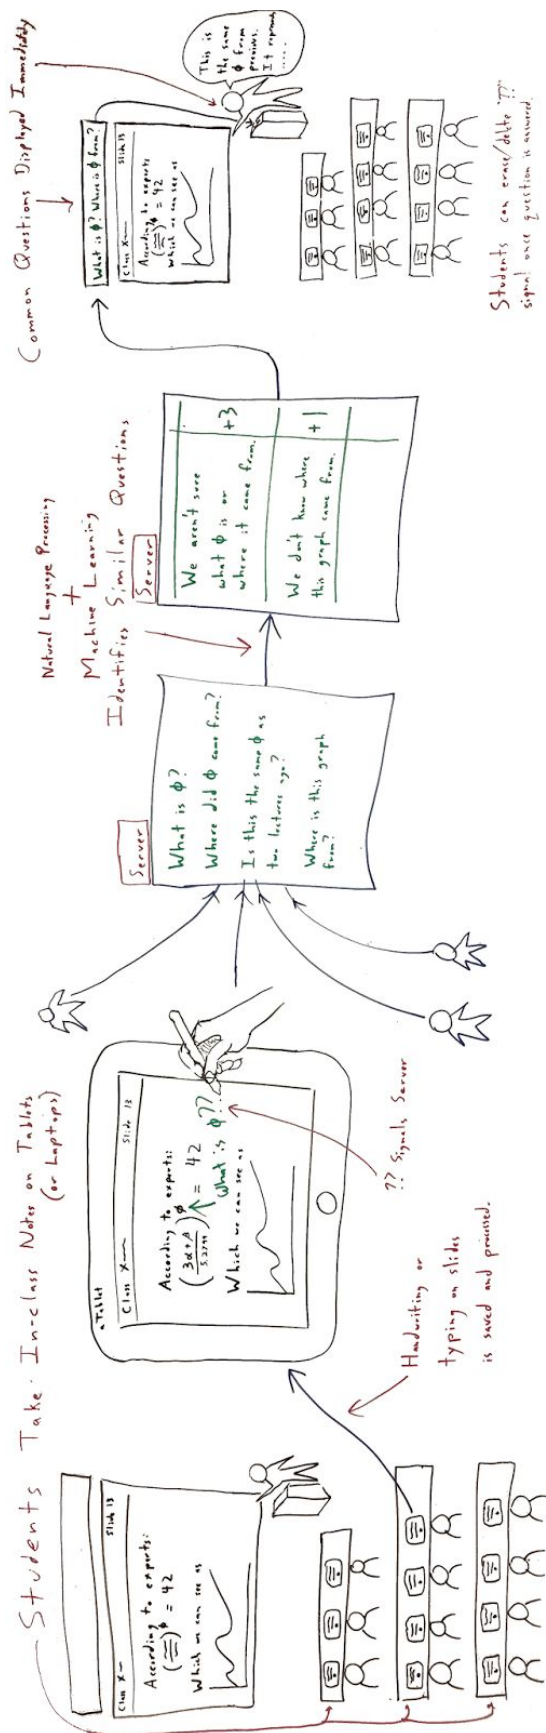 Students Take In-class Notes on Tablets
(or Laptops)
Class X
Slide 13
According to experts:
( )^ϕ = 42
Which we can see as
Handwriting or
typing on slides
is saved and processed.
a Tablet
Class X
Slide 13
According to experts:
(3α+β / 5.2799)^ϕ = 42
What is ϕ??
Which we can see as
?? Signals Server
Server
What is ϕ?
Where did ϕ come from?
Is this the same ϕ as
two lectures ago?
Where is this graph
from?
Natural Language Processing
+
Machine Learning
Identifies Similar Questions
Server
We aren't sure
what ϕ is or
where it came from.
+3
We don't know where
this graph came from.
+1
Common Questions Displayed Immediately
What is ϕ? Where is ϕ from?
Class X
Slide 13
According to experts:
( )^ϕ = 42
Which we can see as
This is
the same
ϕ from
It
......
Students can erase/delete "??"
signal once question is answered.